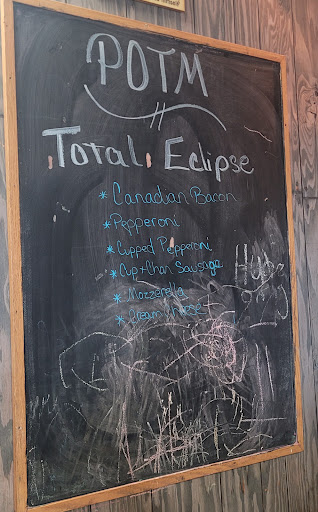 POTM
Total Eclipse
* Canadian Bacon
* Pepperoni
* Cupped Pepperoni
* Cup + Char Sausage
* Mozzerella
* Cream